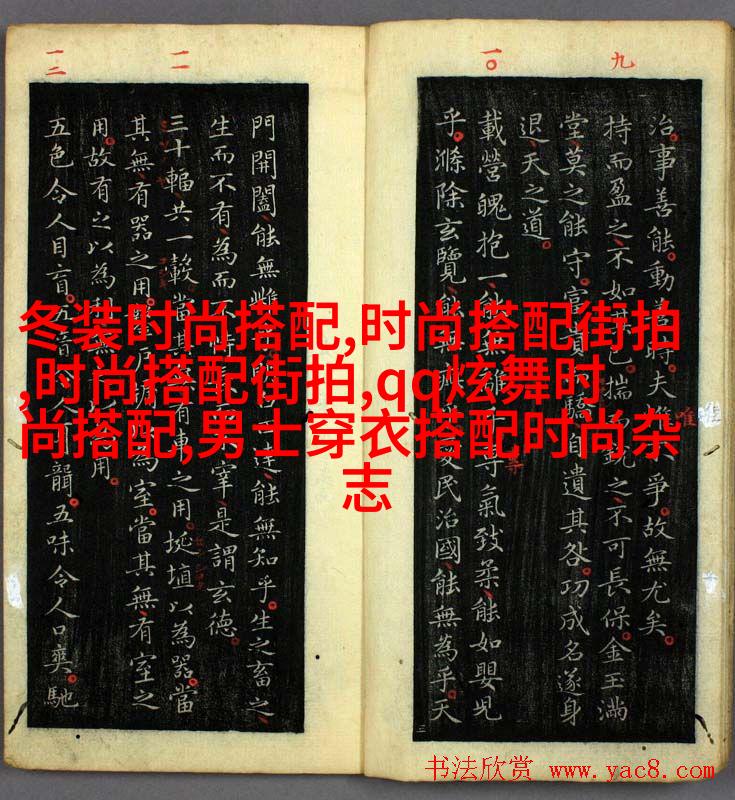 九
一〇
一一
一二
治事善能動善時夫唯爭故無尤矣
持而盈之不如其已揣而銳之不可長保金玉滿
堂莫之能守富貴驕自遺其咎功成名遂身
退天之道
載營魄抱一能無離乎專氣致柔能如嬰兒
乎滌除玄覽能無疵愛民治國能無為乎天
門開闔能無雌達能無知乎生之畜之
生而不有為而不恃宰是謂玄德
三十輻共一轂當其無有車之用埏埴以為器當
其無有器之用鑿戶牖為室當其無有室之
用故有之以為利無用
五色令人目盲五音令人聾五味令人口爽馳
唯
冬装时尚搭配,时尚搭配街拍
,时尚搭配街拍,qq炫舞时
尚搭配,男士穿衣搭配时尚杂
志
书法欣赏 www.yac8.com